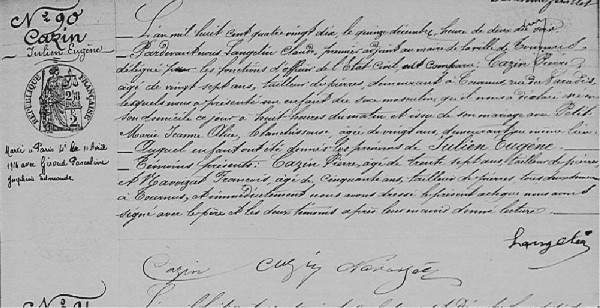 No 90
Cazin
Julien Eugène
RÉPUBLIQUE FRANÇAISE
Marié à Paris 4e le 11 Avril
avec Giroud Pasceline
Joséphine Edmonde
L'an mil huit cent quatre vingt dix, le quinze décembre, heure de deux du soir
Pardevant nous Langelin Claude, premier adjoint au maire de la ville de Tournus
délégué pour les fonctions d'officier de l'Etat Civil, est Comparu Cazin Pierre
âgé de vingt sept ans, tailleur de pierres, demeurant à Tournus, rue du Paradis
lequel nous a présenté un enfant du sexe masculin, qu'il nous a déclaré né en
son domicile ce jour à huit heures du matin et issu de son mariage avec Petit
Marie Jeanne Alice, blanchisseuse, âgée de vingt ans, demeurant au même lieu
Auquel enfant ont été donnés les prénoms de Julien Eugène
Témoins présents: Cazin Pierre, âgé de trente sept ans, tailleur de pierres
et Navoizat François, âgé de Cinquante ans, tailleur de pierres tous demeurant
à Tournus, et immédiatement nous avons dressé le présent acte que nous avons
signé avec le père et les deux témoins après leur en avoir donné lecture
Langelin
Cazin Cazin